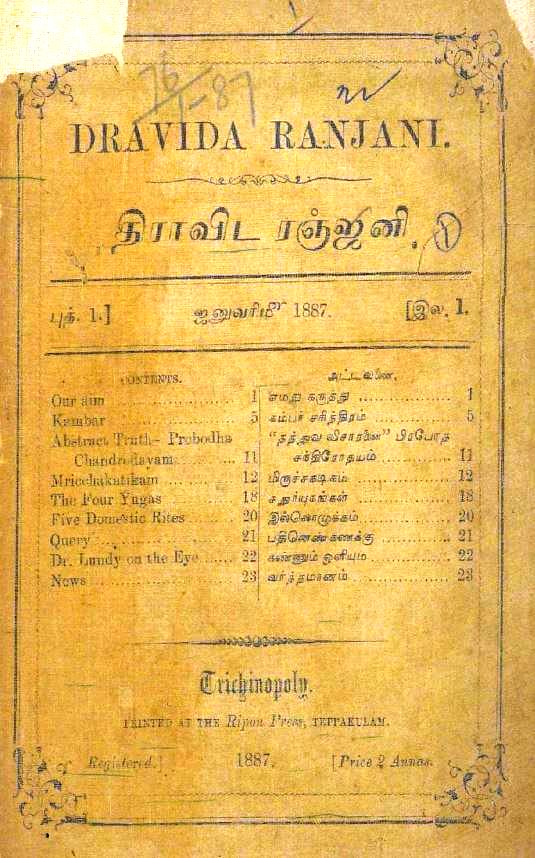 76/1-87
DRAVIDA RANJANI.
திராவிட ரஞ்ஜனி.
1
புத். 1.] ஜனுவரி 1887. [இல. 1.
CONTENTS.
Our aim 1
Kambar 5
Abstract Truth- Probodha
Chandrodayam 11
Mricchakatikam 12
The Four Yugas 18
Five Domestic Rites 20
Query 21
Dr. Lundy on the Eye 22
News 23
அட்டவணை.
எமது கருத்து 1
கம்பர் சரித்திரம் 5
"தத்துவ விசாரணை" பிரபோத
சந்திரோதயம் 11
மிருச்சகடிகம் 12
சதுர்யுகங்கள் 18
இல்லொழுக்கம் 20
பதினெண்கணக்கு 21
கண்ணும் ஒளியும் 22
வர்த்தமானம் 23
Trichinopoly.
PRINTED AT THE Ripon Press, TEPPAKULAM.
Registered.] 1887. [Price 2 Annas.